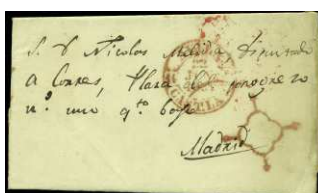 S. D. Nicolas Diputado
a Cortes, Plaza del progreso
nº. uno qto. bajo
Madrid